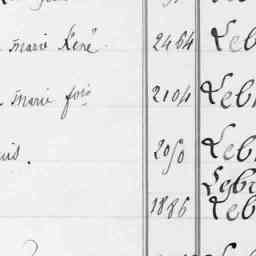 marie René. 2464 Leb
Marie fois 2104 Leb
uis. 2050 Leb
Leb
1886 Leb